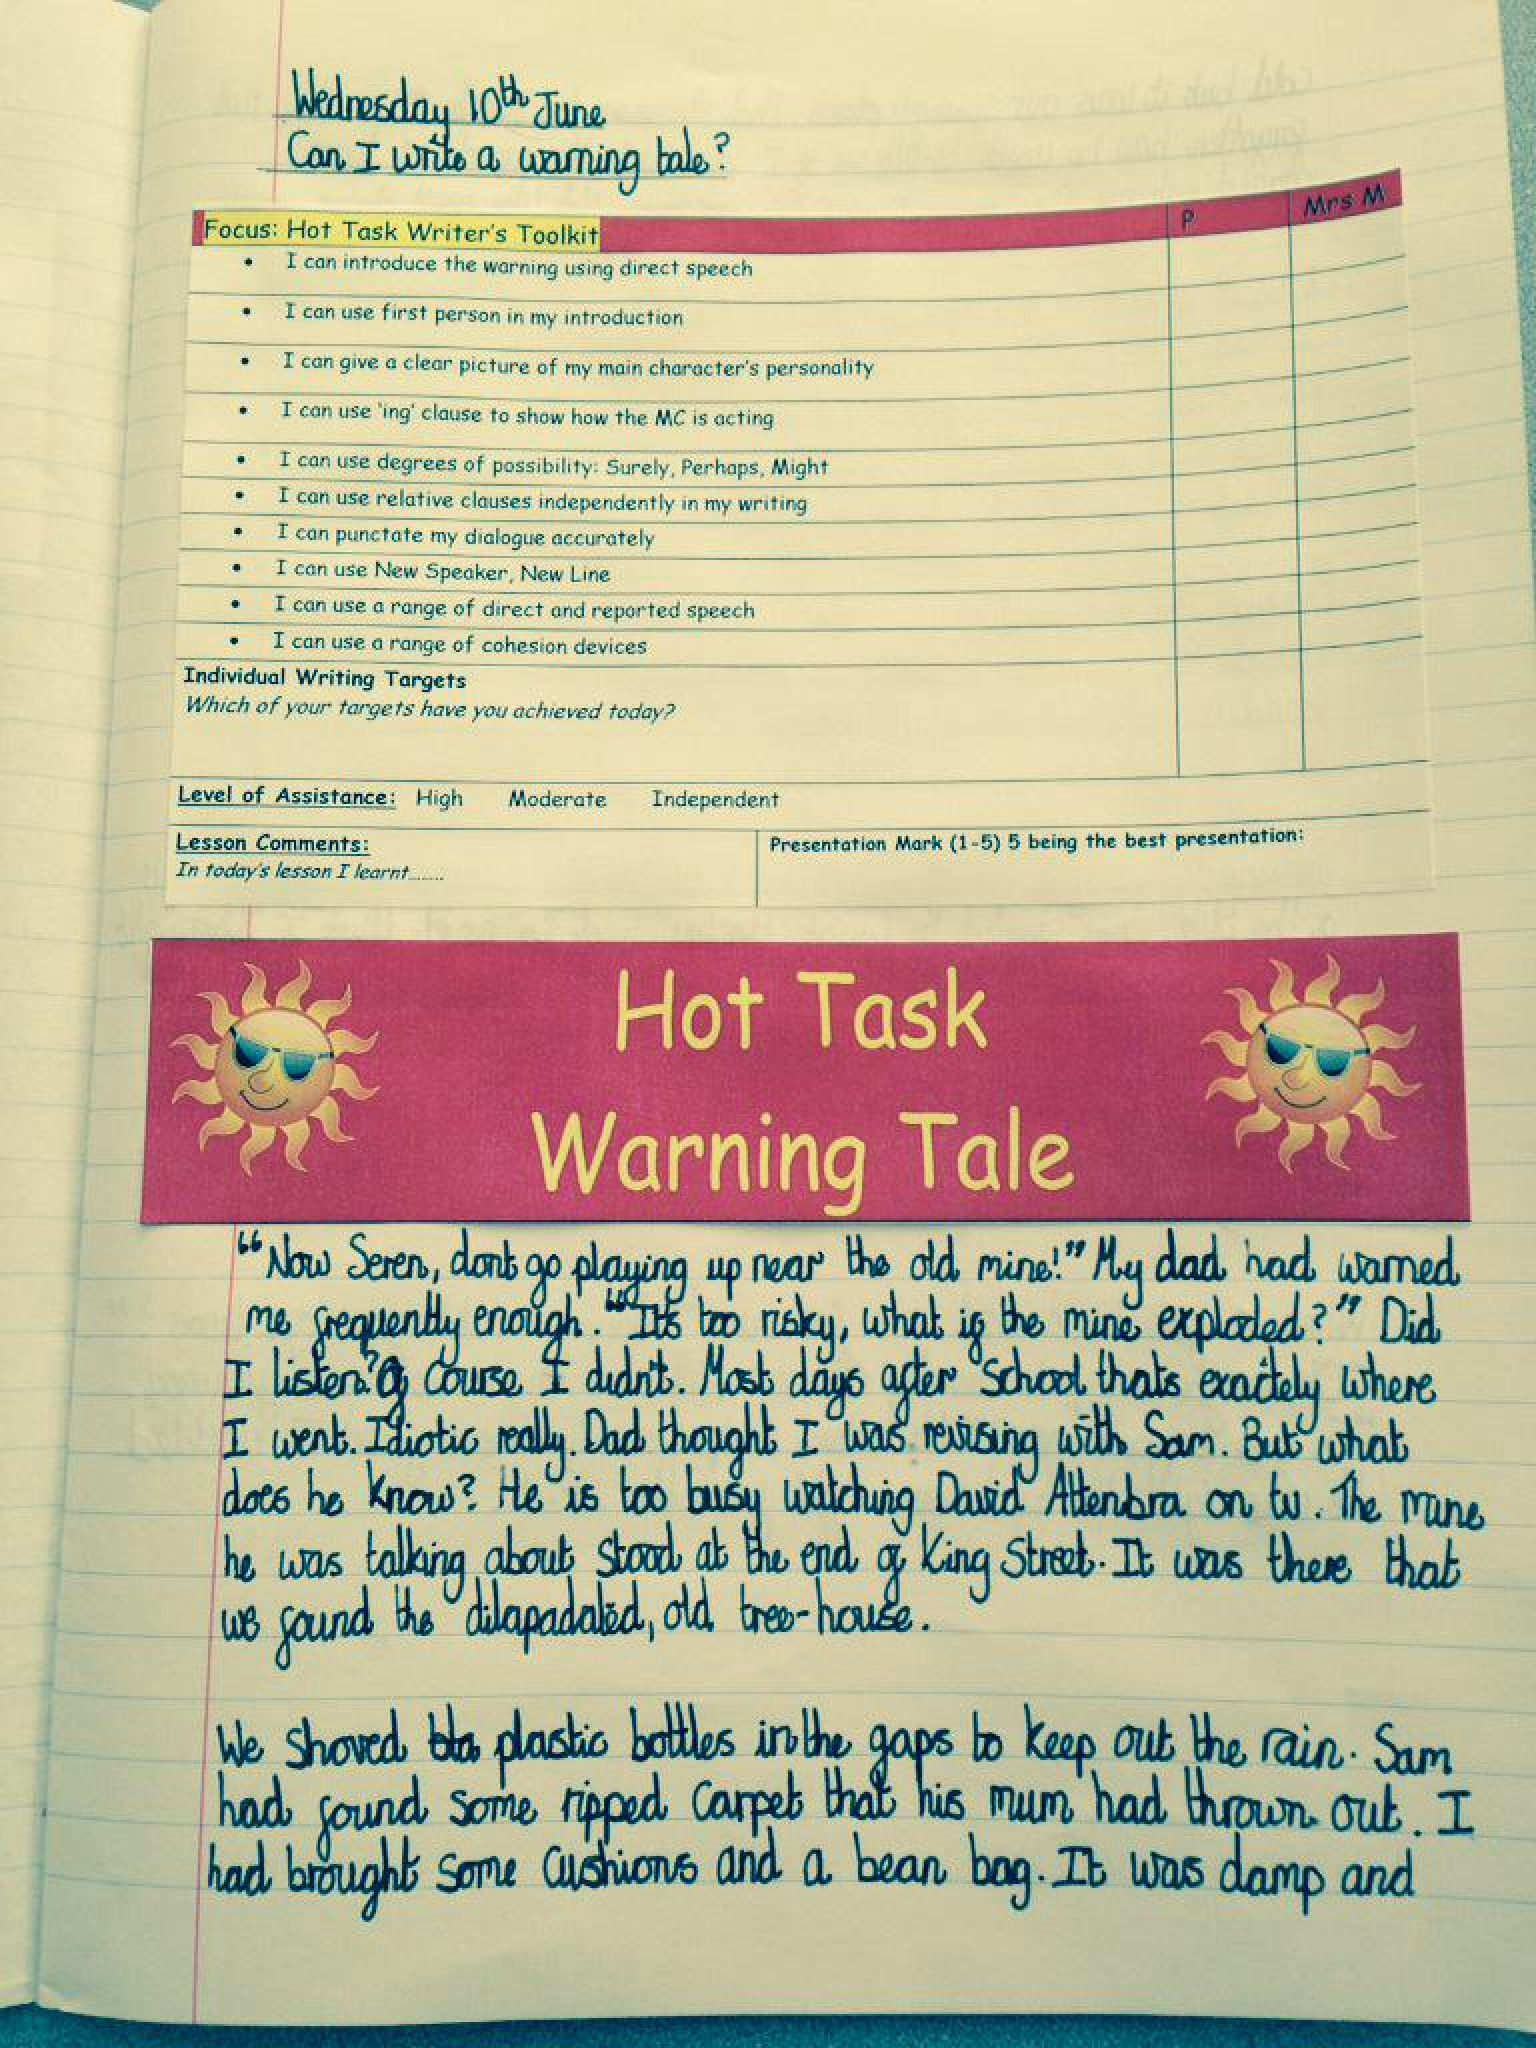 Wednesday 10th June
Can I write a warning tale?
Focus: Hot Task Writer's Toolkit P Mrs M
• I can introduce the warning using direct speech
• I can use first person in my introduction
• I can give a clear picture of my main character's personality
• I can use 'ing' clause to show how the MC is acting
• I can use degrees of possibility: Surely, Perhaps, Might
• I can use relative clauses independently in my writing
• I can punctate my dialogue accurately
• I can use New Speaker, New Line
• I can use a range of direct and reported speech
• I can use a range of cohesion devices
Individual Writing Targets
Which of your targets have you achieved today?
Level of Assistance: High Moderate Independent
Lesson Comments:
In today's lesson I learnt.......
Presentation Mark (1-5) 5 being the best presentation:
Hot Task
Warning Tale
"Now Seren, dont go playing up near the old mine!" My dad had warned
me frequently enough. "It's too risky, what if the mine exploded?" Did
I listen? Of course I didn't. Most days after school thats exactely where
I went. Idiotic really. Dad thought I was revising with Sam. But what
does he know? He is too busy watching David Attenbra on tv. The mine
he was talking about stood at the end of King Street. It was there that
we found the dilapadated, old tree-house.
We shoved plastic bottles in the gaps to keep out the rain. Sam
had found some ripped carpet that his mum had thrown out. I
had brought some cushions and a bean bag. It was damp and